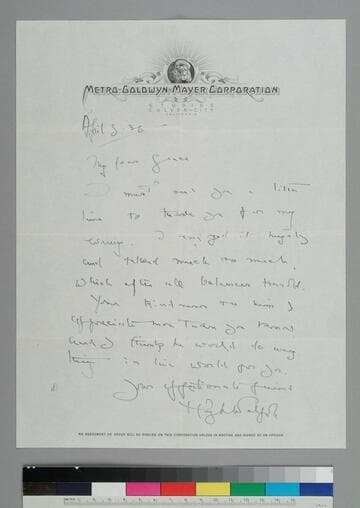 METRO-GOLDWYN-MAYER CORPORATION
STUDIOS
CULVER CITY
CALIFORNIA
April 3 35
My dear Grace
I must send you a little
line to thank you for my
evening. I enjoyed it hugely
and talked much too much.
Which after all balances Harold.
Your kindness to him I
appreciate more than you know
and I think he would do any
thing in the world for you.
Your affectionate friend
Hugh Walpole
NO AGREEMENT OR ORDER WILL BE BINDING ON THIS CORPORATION UNLESS IN WRITING AND SIGNED BY AN OFFICER